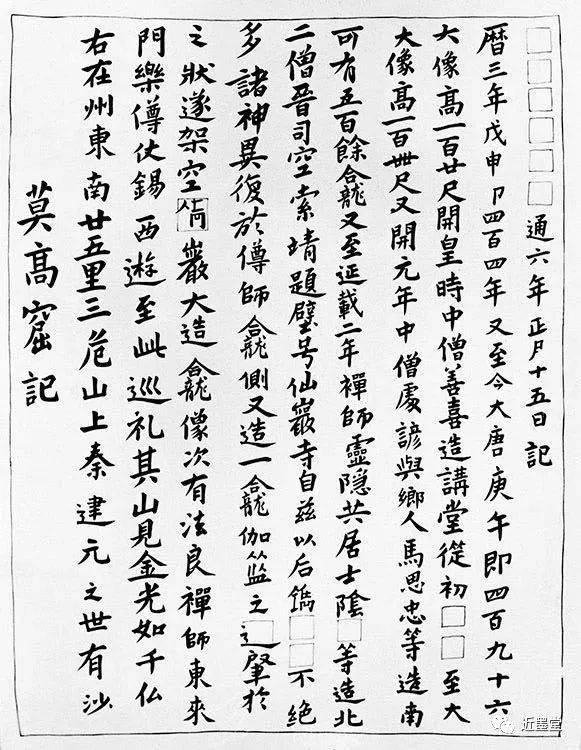 莫高窟記
右在州東南廿五里三危山上秦建元之世有沙
門樂僔仗錫西遊至此巡礼其山見金光如千仏
之狀遂架空巖大造龕像次有法良禪師東來
多諸神異復於僔師龕側又造一龕伽藍之□肇於
二僧晉司空索靖題壁号仙巖寺自茲以后鐫□□不绝
可有五百餘龕又至延載二年禪師靈隱共居士陰□等造北
大像高一百卌尺又開元年中僧處諺與鄉人馬思忠等造南
大像高一百廿尺開皇時中僧善喜造講堂從初□□至大
曆三年戊申卩四百四年又至今大唐庚午即四百九十六
□□□□□通六年正月十五日記
近墨堂